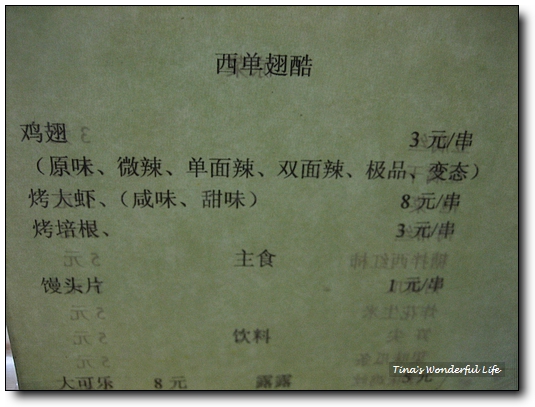 西单翅酷
鸡翅 3 元/串
（原味、微辣、单面辣、双面辣、极品、变态）
烤大虾、（咸味、甜味） 8 元/串
烤培根、 3 元/串
主食
馒头片 1 元/串
饮料
大可乐 8 元 露露 5 元
Tina's Wonderful Life